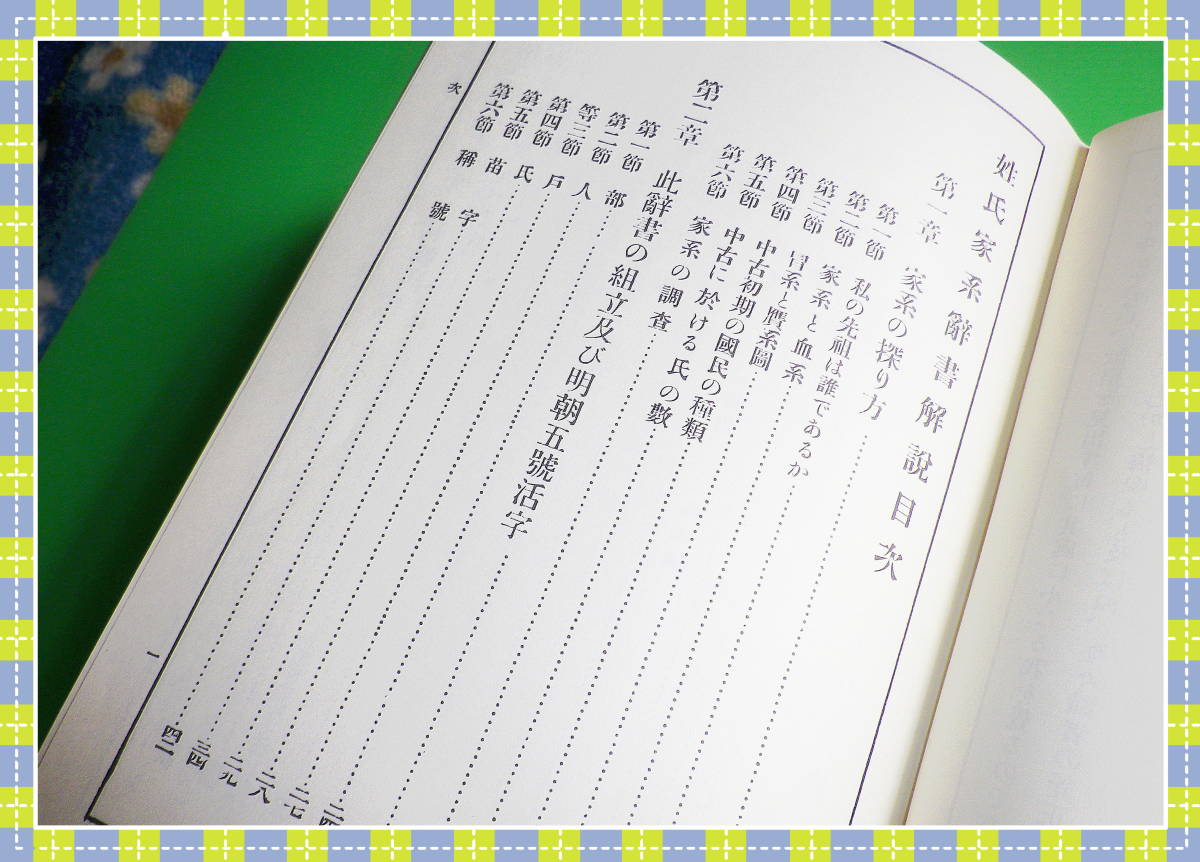 姓氏家系辭書解說目次
第一章 家系の探り方
第一節 私の先祖は誰であるか
第二節 家系と血系
第三節 冒系と贋系圖
第四節 中古初期の國民の種類
第五節 中古に於ける氏の數
第六節 家系の調査
第二章 此辭書の組立及び明朝五號活字
第一節 部
第二節 人 二七
等三節 戶 二八
第四節 氏 二九
第五節 苗字 三四
第六節 稱號 四二
次
一